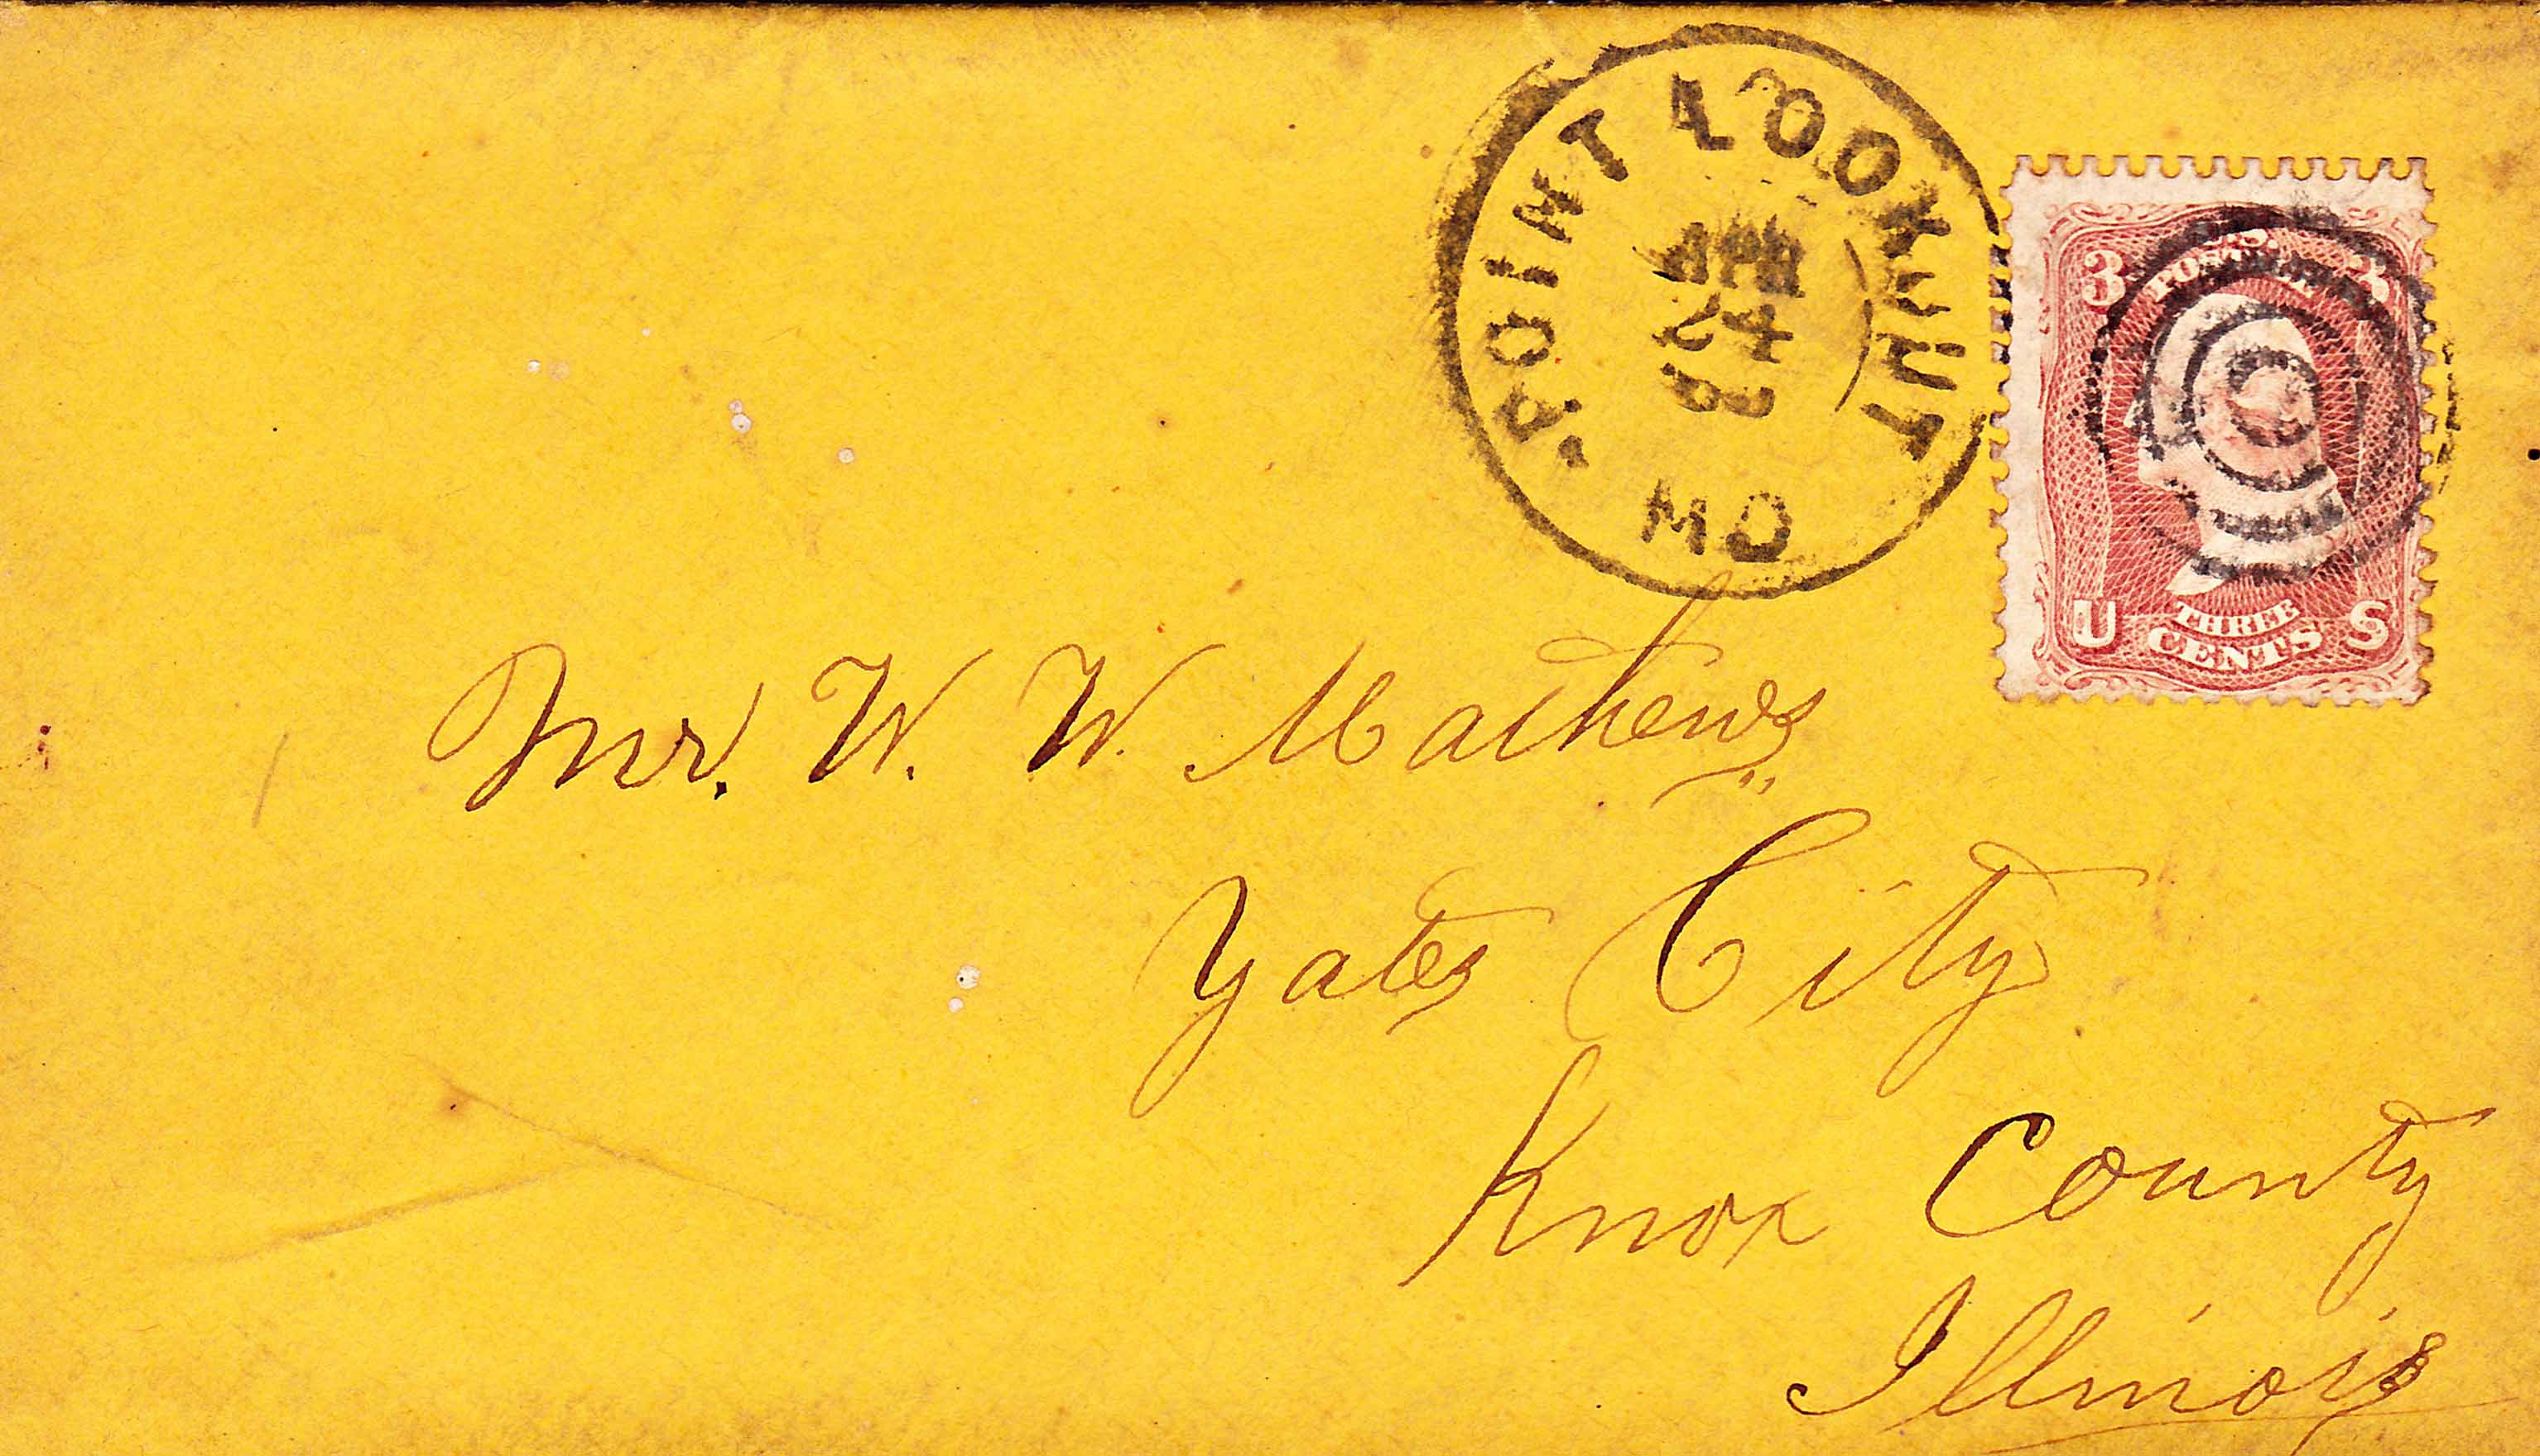 POINT LOOKOUT
APR
24
MD
U.S.
POSTAGE
3 3
U S
THREE
CENTS
Mr. W. W. Mathews
Yates City
Knox County
Illinois